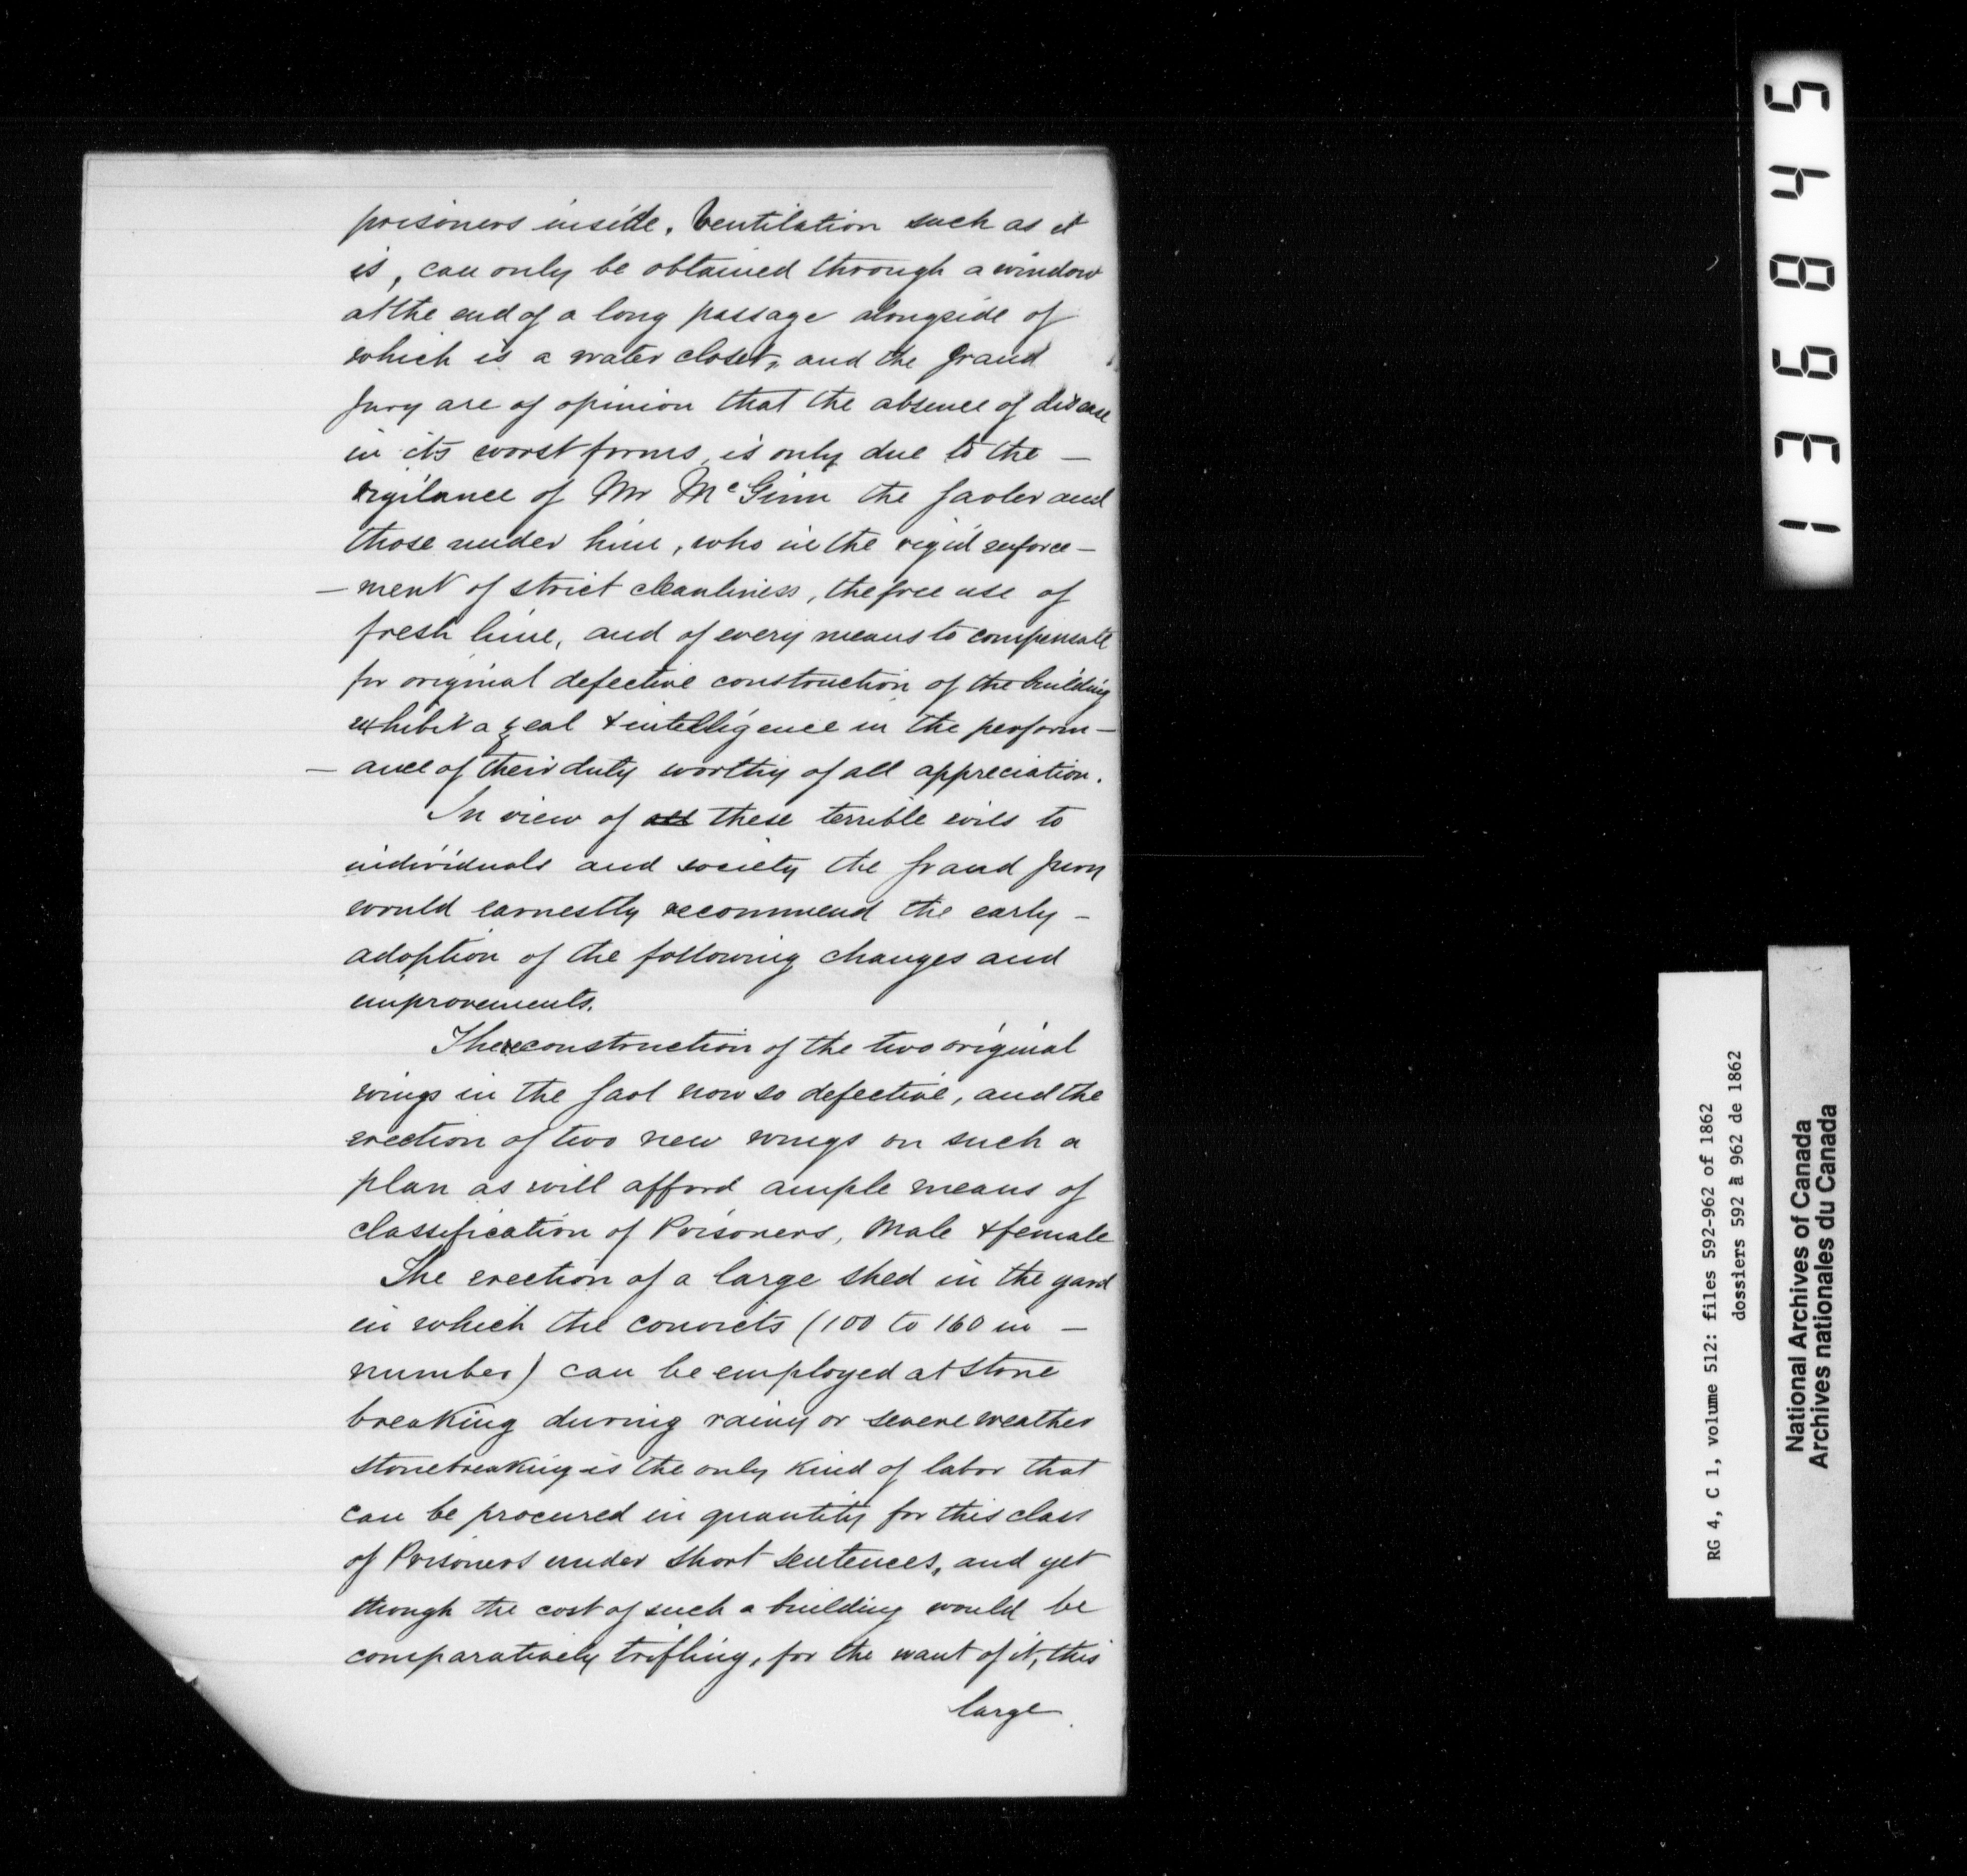 prisoners inside. Ventilation such as it
is, can only be obtained through a window
at the end of a long passage alongside of
which is a water closet, and the Grand
Jury are of opinion that the absence of disease
in its worst forms, is only due to the —
vigilance of Mr McGinn the Gaoler and
those under him, who in the rigid enforce—
—ment of strict cleanliness, the free use of
fresh lime, and of every means to compensate
for original defective construction of the building
exhibit a zeal & intelligence in the perform—
—ance of their duty worthy of all appreciation.
In view of all these terrible evils to
individuals and society the Grand Jury
would earnestly recommend the early —
adoption of the following changes and
improvements.
The reconstruction of the two original
wings in the Gaol now so defective, and the
erection of two new wings on such a
plan as will afford ample means of
classification of Prisoners, Male & female
The erection of a large shed in the yard
in which the convicts (100 to 160 in —
number) can be employed at stone
breaking during rainy or severe weather
stonebreaking is the only kind of labor that
can be procured in quantity for this class
of Prisoners under short sentences, and yet
though the cost of such a building would be
comparatively trifling, for the want of it, this
large
136845
RG 4, C 1, volume 512: files 592-962 of 1862
dossiers 592 à 962 de 1862
National Archives of Canada
Archives nationales du Canada